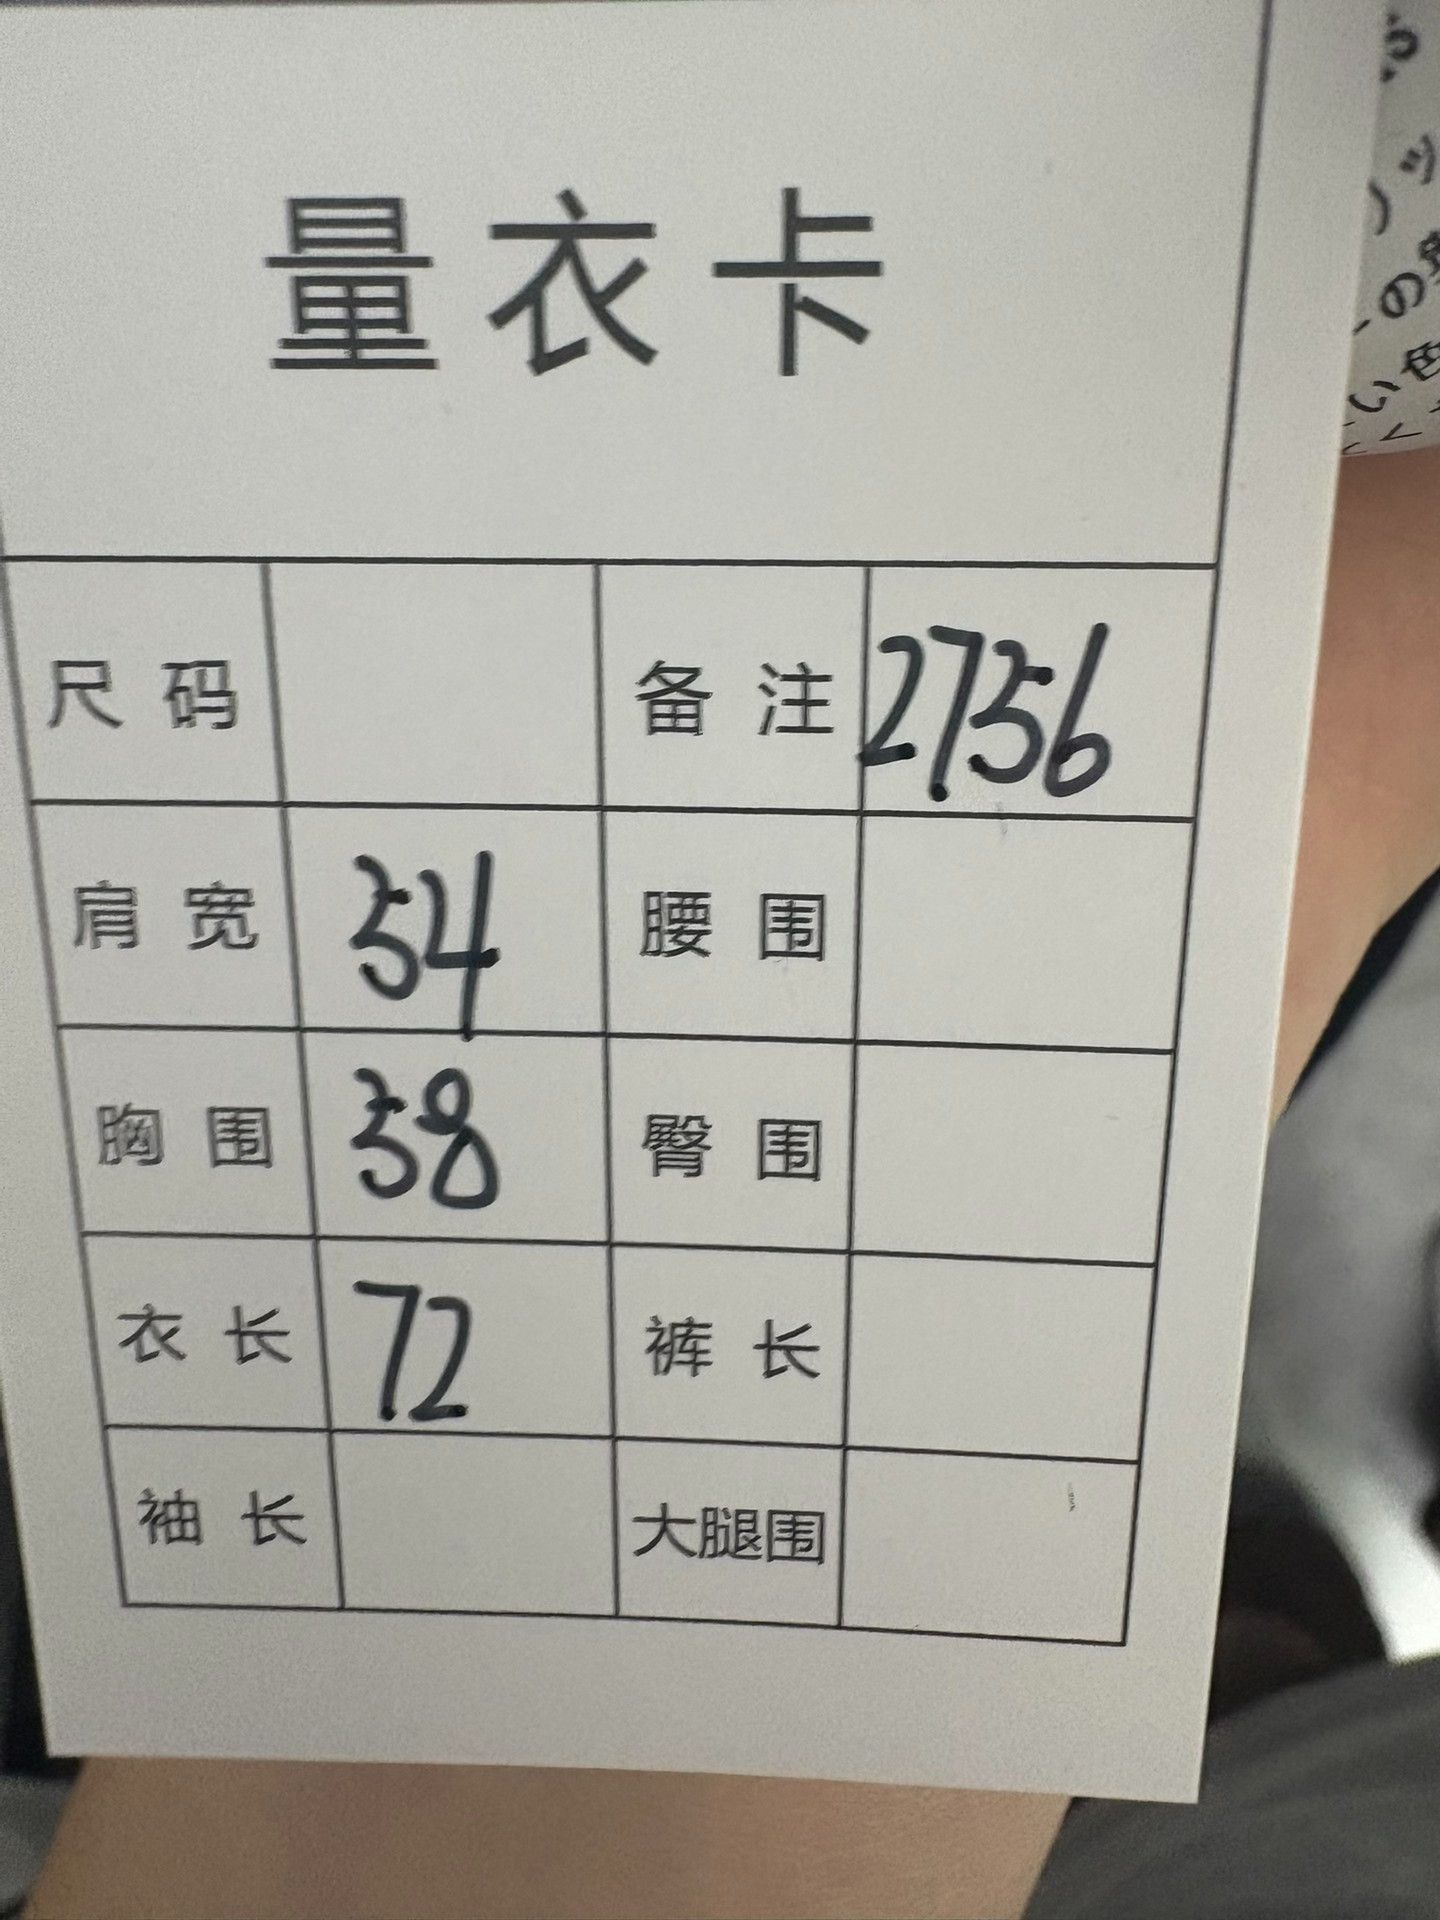 量衣卡
尺码 备注 2756
肩宽 54 腰围
胸围 58 臀围
衣长 72 裤长
袖长 大腿围
の
い色